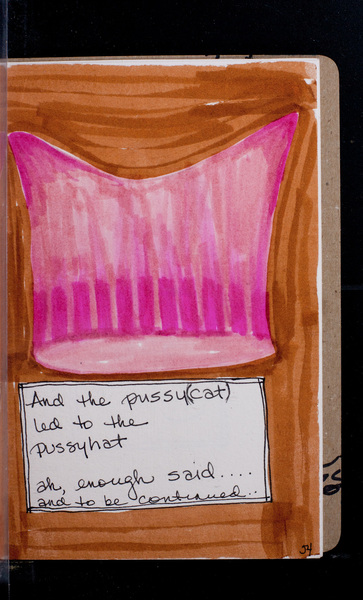 And the pussy(cat)
led to the
pussyhat
ah, enough said....
and to be continued..
54